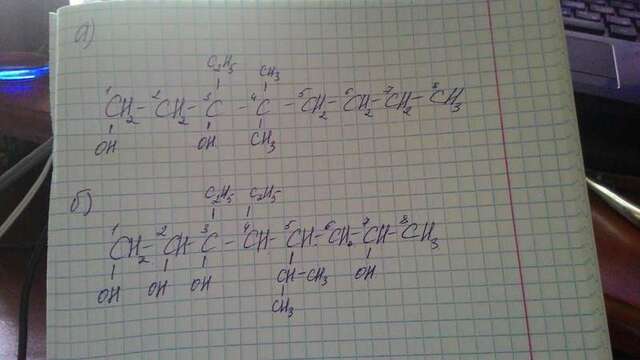 а)
C₂H₅ CH₃
¹CH₂ - ²CH₂ - ³C - ⁴C - ⁵CH₂ - ⁶CH₂ - ⁷CH₂ - ⁸CH₃
OH OH CH₃
б)
C₂H₅ C₂H₅
¹CH₂ - ²CH - ³C - ⁴CH - ⁵CH - ⁶CH₂ - ⁷CH - ⁸CH₃
OH OH OH CH - CH₃ OH
CH₃